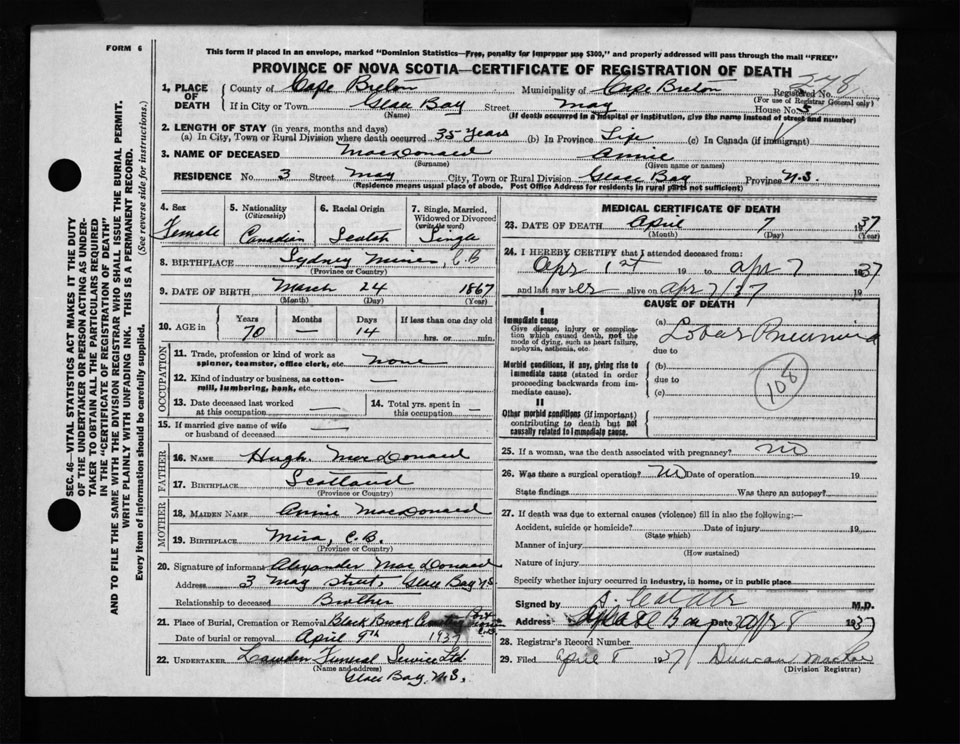 FORM 6
This form if placed in an envelope, marked "Dominion Statistics—Free, penalty for improper use $300," and properly addressed will pass through the mail "FREE"
PROVINCE OF NOVA SCOTIA—CERTIFICATE OF REGISTRATION OF DEATH
378
1. PLACE OF DEATH County of Cape Breton Municipality of Cape Breton Registered No.
(For use of Registrar General only)
If in City or Town Glace Bay Street May House No. 5
(Name) (If death occurred in a hospital or institution, give the name instead of street and number)
2. LENGTH OF STAY (in years, months and days)
(a) In City, Town or Rural Division where death occurred 35 years (b) In Province Life (c) In Canada (if immigrant)
3. NAME OF DECEASED MacDonald Annie
(Surname) (Given name or names)
RESIDENCE No. 3 Street May City, Town or Rural Division Glace Bay Province N.S.
(Residence means usual place of abode. Post Office Address for residents in rural parts not sufficient)
SEC. 46—VITAL STATISTICS ACT MAKES IT THE DUTY
OF THE UNDERTAKER OR PERSON ACTING AS UNDER-
TAKER TO OBTAIN ALL THE PARTICULARS REQUIRED
IN THE "CERTIFICATE OF REGISTRATION OF DEATH"
AND TO FILE THE SAME WITH THE DIVISION REGISTRAR WHO SHALL ISSUE THE BURIAL PERMIT.
WRITE PLAINLY WITH UNFADING INK. THIS IS A PERMANENT RECORD.
Every item of information should be carefully supplied. (See reverse side for instructions.)
4. Sex Female
5. Nationality (Citizenship) Canadian
6. Racial Origin Scotch
7. Single, Married, Widowed or Divorced (write the word) Single
8. BIRTHPLACE Sydney Mines, C.B
(Province or Country)
9. DATE OF BIRTH March 24 1867
(Month) (Day) (Year)
10. AGE in Years 70 Months — Days 14 If less than one day old hrs. or min.
OCCUPATION
11. Trade, profession or kind of work as spinner, teamster, office clerk, etc. none
12. Kind of industry or business, as cotton-mill, lumbering, bank, etc. —
13. Date deceased last worked at this occupation —
14. Total yrs. spent in this occupation —
15. If married give name of wife or husband of deceased —
FATHER
16. NAME Hugh. MacDonald
17. BIRTHPLACE Scotland
(Province or Country)
MOTHER
18. MAIDEN NAME Annie MacDonald
19. BIRTHPLACE Mira, C.B.
(Province or Country)
20. Signature of informant Alexander MacDonald
Address 3 May Street Glace Bay N.S
Relationship to deceased Brother
21. Place of Burial, Cremation or Removal Black Brook Cemetery Port C.B.
Date of burial or removal April 9th 1937
22. UNDERTAKER Lawden Funeral Service Ltd.
(Name and address)
Glace Bay, N.S.
MEDICAL CERTIFICATE OF DEATH
23. DATE OF DEATH April 7 1937
(Month) (Day) (Year)
24. I HEREBY CERTIFY that I attended deceased from:
Apr 1st 19 to Apr 7 1937
and last saw her alive on Apr 7/37 19
CAUSE OF DEATH
I
Immediate cause
Give disease, injury or complication which caused death, not the mode of dying, such as heart failure, asphyxia, asthenia, etc.
(a) Lobar Pneumonia
due to
Morbid conditions, if any, giving rise to immediate cause (stated in order proceeding backwards from immediate cause).
(b)
due to
(c)
108
II
Other morbid conditions (if important) contributing to death but not causally related to immediate cause.
25. If a woman, was the death associated with pregnancy? no
26. Was there a surgical operation? No Date of operation 19
State findings Was there an autopsy?
27. If death was due to external causes (violence) fill in also the following:—
Accident, suicide or homicide? Date of injury 19
(State which)
Manner of injury
(How sustained)
Nature of injury
Specify whether injury occurred in industry, in home, or in public place
Signed by M.D.
Address Glace Bay Date Apr 8 1937
28. Registrar's Record Number
29. Filed April 8 1937 Duncan
(Division Registrar)